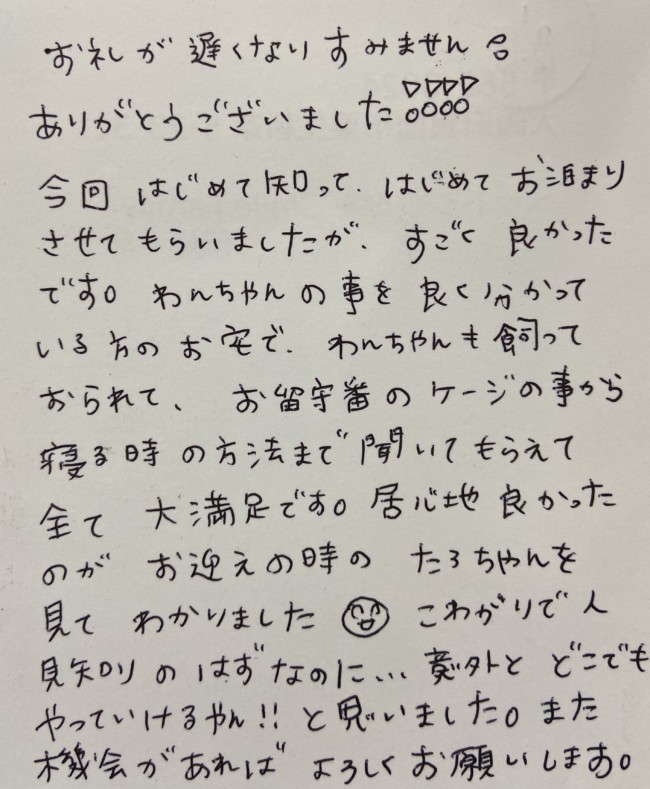 お礼が遅くなりすみません
ありがとうございました!!!!
今回 はじめて知って、はじめてお泊まり
させてもらいましたが、すごく 良かった
です。わんちゃんの事を良く分かって
いる方のお宅で、わんちゃんも飼って
おられて、お留守番のケージの事から
寝る時の方法まで聞いてもらえて
全て 大満足です。居心地 良かった
のが お迎えの時の たろちゃんを
見て わかりました こわがりで人
見知りのはずなのに... 意外と どこでも
やっていけるやん!! と思いました。また
機会があれば よろしくお願いします。